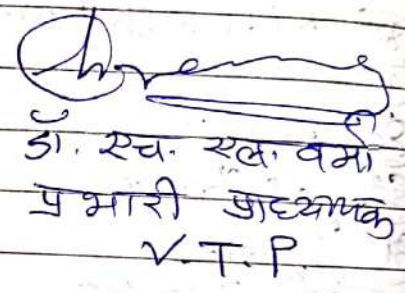 डॉ. एच. एल. वर्मा
प्रभारी प्राध्यापक
V.T.P